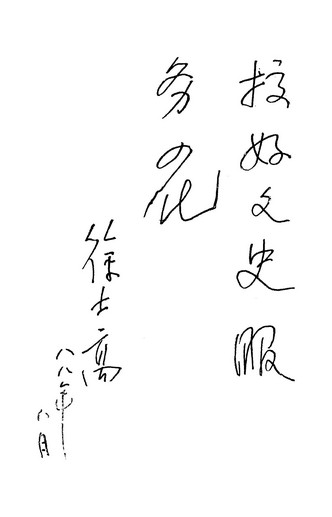 搞好文史服
务四化
徐士高
八八年
八月